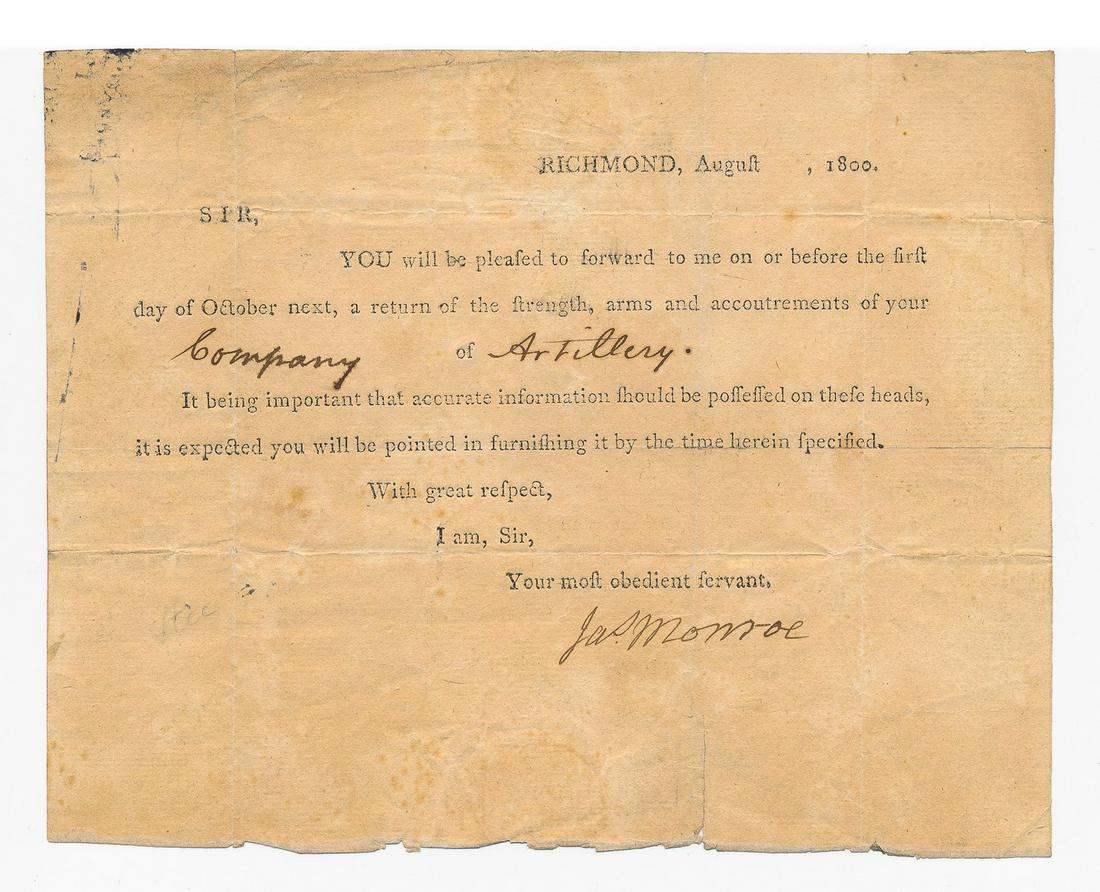 RICHMOND, Auguſt , 1800.
SIR,
YOU will be pleaſed to forward to me on or before the firſt
day of October next, a return of the ſtrength, arms and accoutrements of your
Company of Artillery.
It being important that accurate information ſhould be poſſeſſed on theſe heads,
it is expected you will be pointed in furniſhing it by the time herein ſpecified.
With great reſpect,
I am, Sir,
Your moſt obedient ſervant,
Jas. Monroe